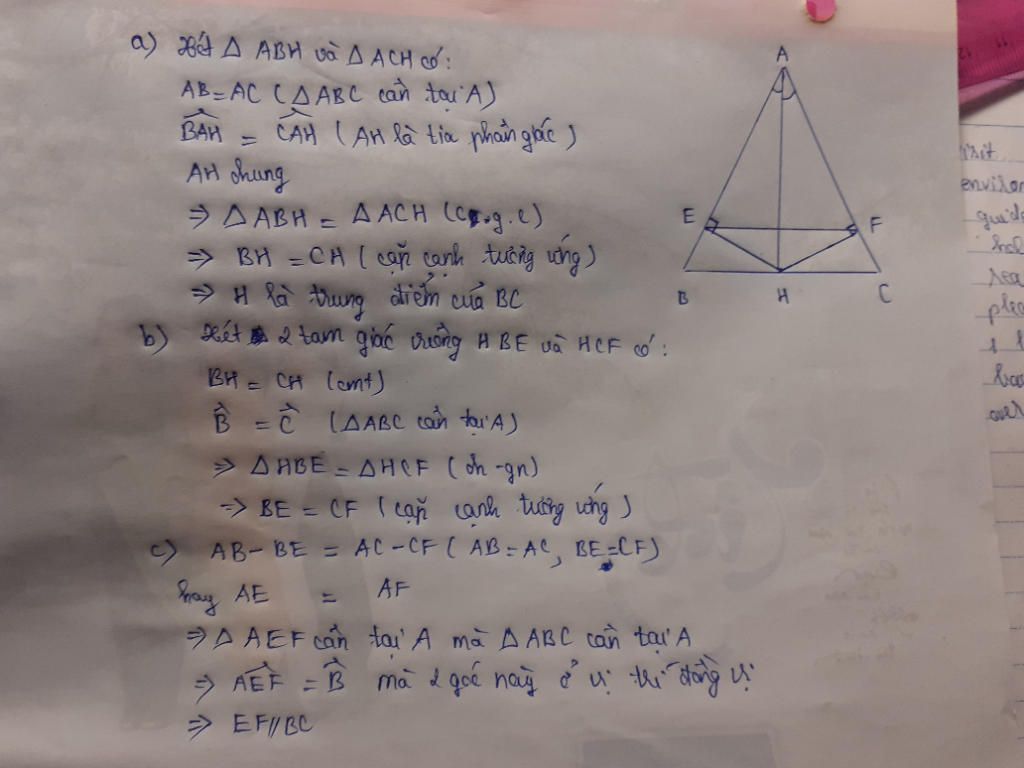 a) Xét △ ABH và △ ACH có:
AB = AC (△ABC cân tại A)
B̂AH = ĈAH (AH là tia phân giác)
AH chung
⇒ △ ABH = △ ACH (c.g.c)
⇒ BH = CH (cặp cạnh tương ứng)
⇒ H là trung điểm của BC
b) Xét 2 tam giác vuông HBE và HCF có:
BH = CH (cmt)
B̂ = Ĉ (△ABC cân tại A)
⇒ △HBE = △HCF (ch - gn)
⇒ BE = CF (cặp cạnh tương ứng)
c) AB - BE = AC - CF (AB = AC, BE = CF)
hay AE = AF
⇒ △ AEF cân tại A mà △ ABC cân tại A
⇒ AÊF = B̂ mà 2 góc này ở vị trí đồng vị
⇒ EF//BC
A
E
F
B
H
C
11
12